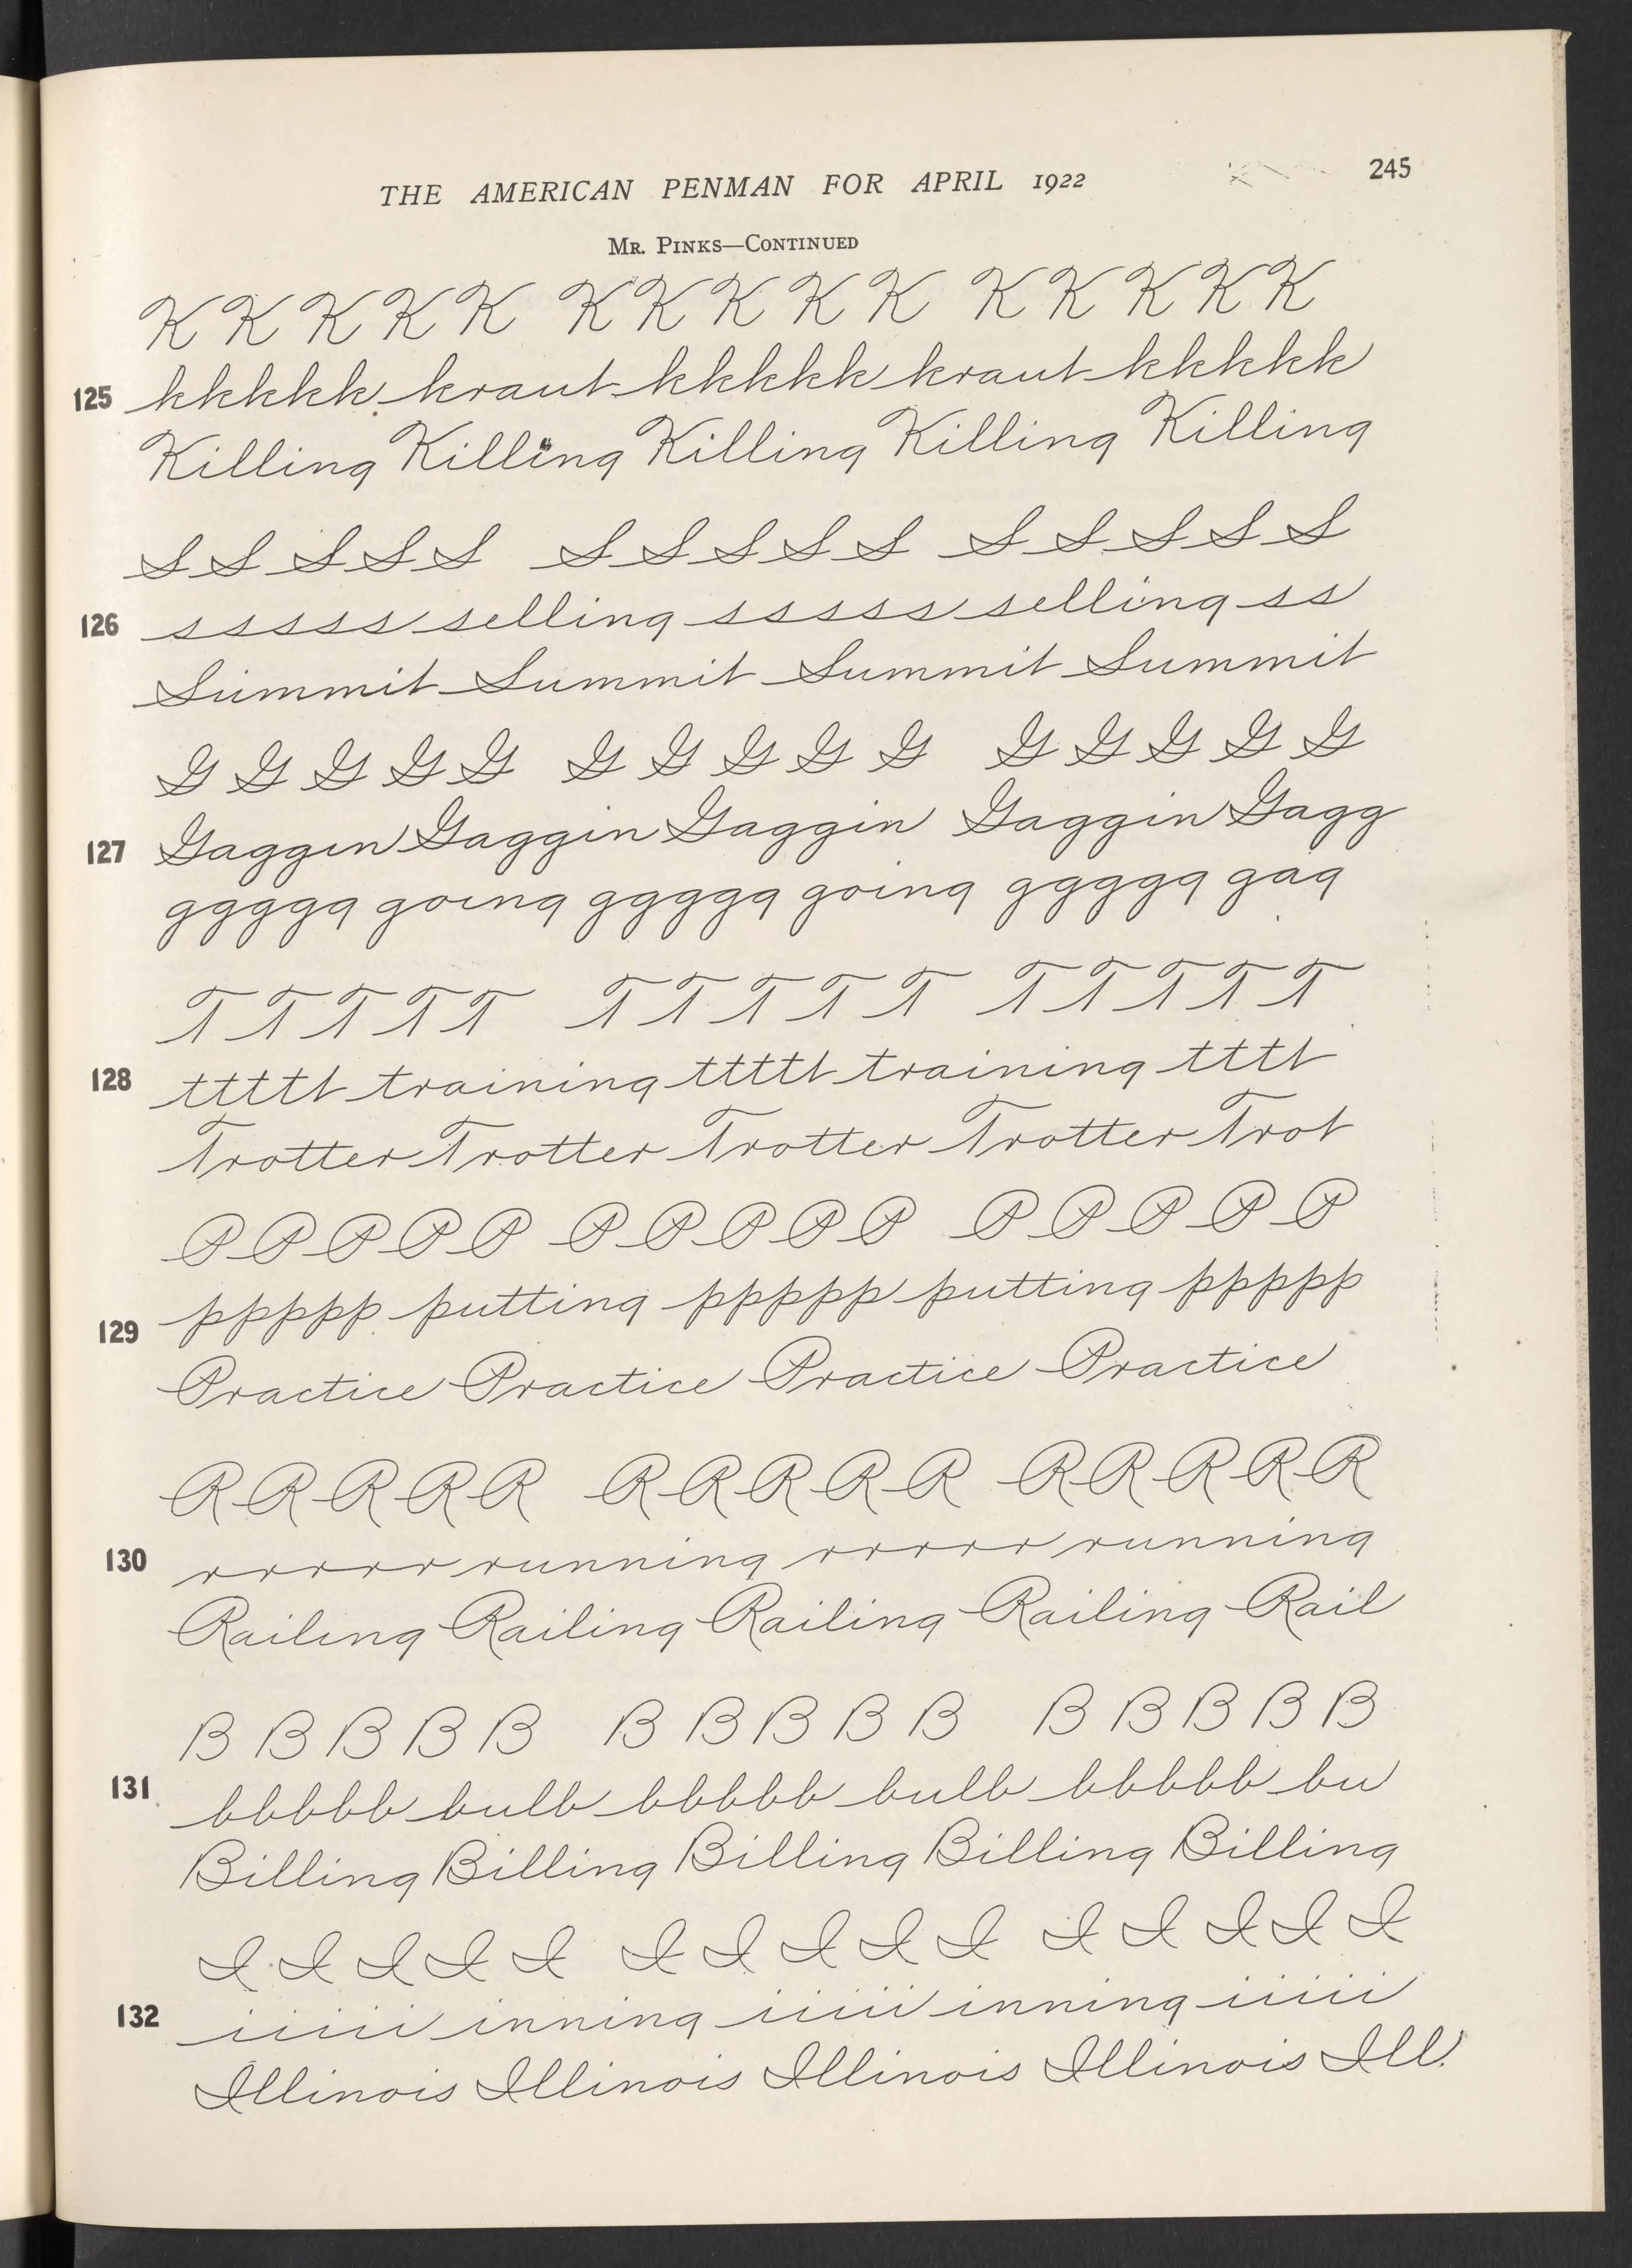 THE AMERICAN PENMAN FOR APRIL 1922 245
MR. PINKS—CONTINUED
K K K K K K K K K K K K K K K
125 kkkkkk kraut kkkkkk kraut kkkkkk
Killing Killing Killing Killing Killing
S S S S S S S S S S S S S S S
126 sssss selling sssss selling ss
Summit Summit Summit Summit
G G G G G G G G G G G G G G G
127 Gaggin Gaggin Gaggin Gaggin Gagg
ggggg going ggggg going ggggg gag
T T T T T T T T T T T T T T T
128 ttttt training ttttt training tttt
Trotter Trotter Trotter Trotter Trot
P P P P P P P P P P P P P P P
129 ppppp putting ppppp putting ppppp
Practice Practice Practice Practice
R R R R R R R R R R R R R R R
130 rrrrr running rrrrr running
Railing Railing Railing Railing Rail
B B B B B B B B B B B B B B B
131 bbbbb bulb bbbbb bulb bbbbb bu
Billing Billing Billing Billing Billing
I I I I I I I I I I I I I I I
132 iiiii inning iiiii inning iiiii
Illinois Illinois Illinois Illinois Ill.